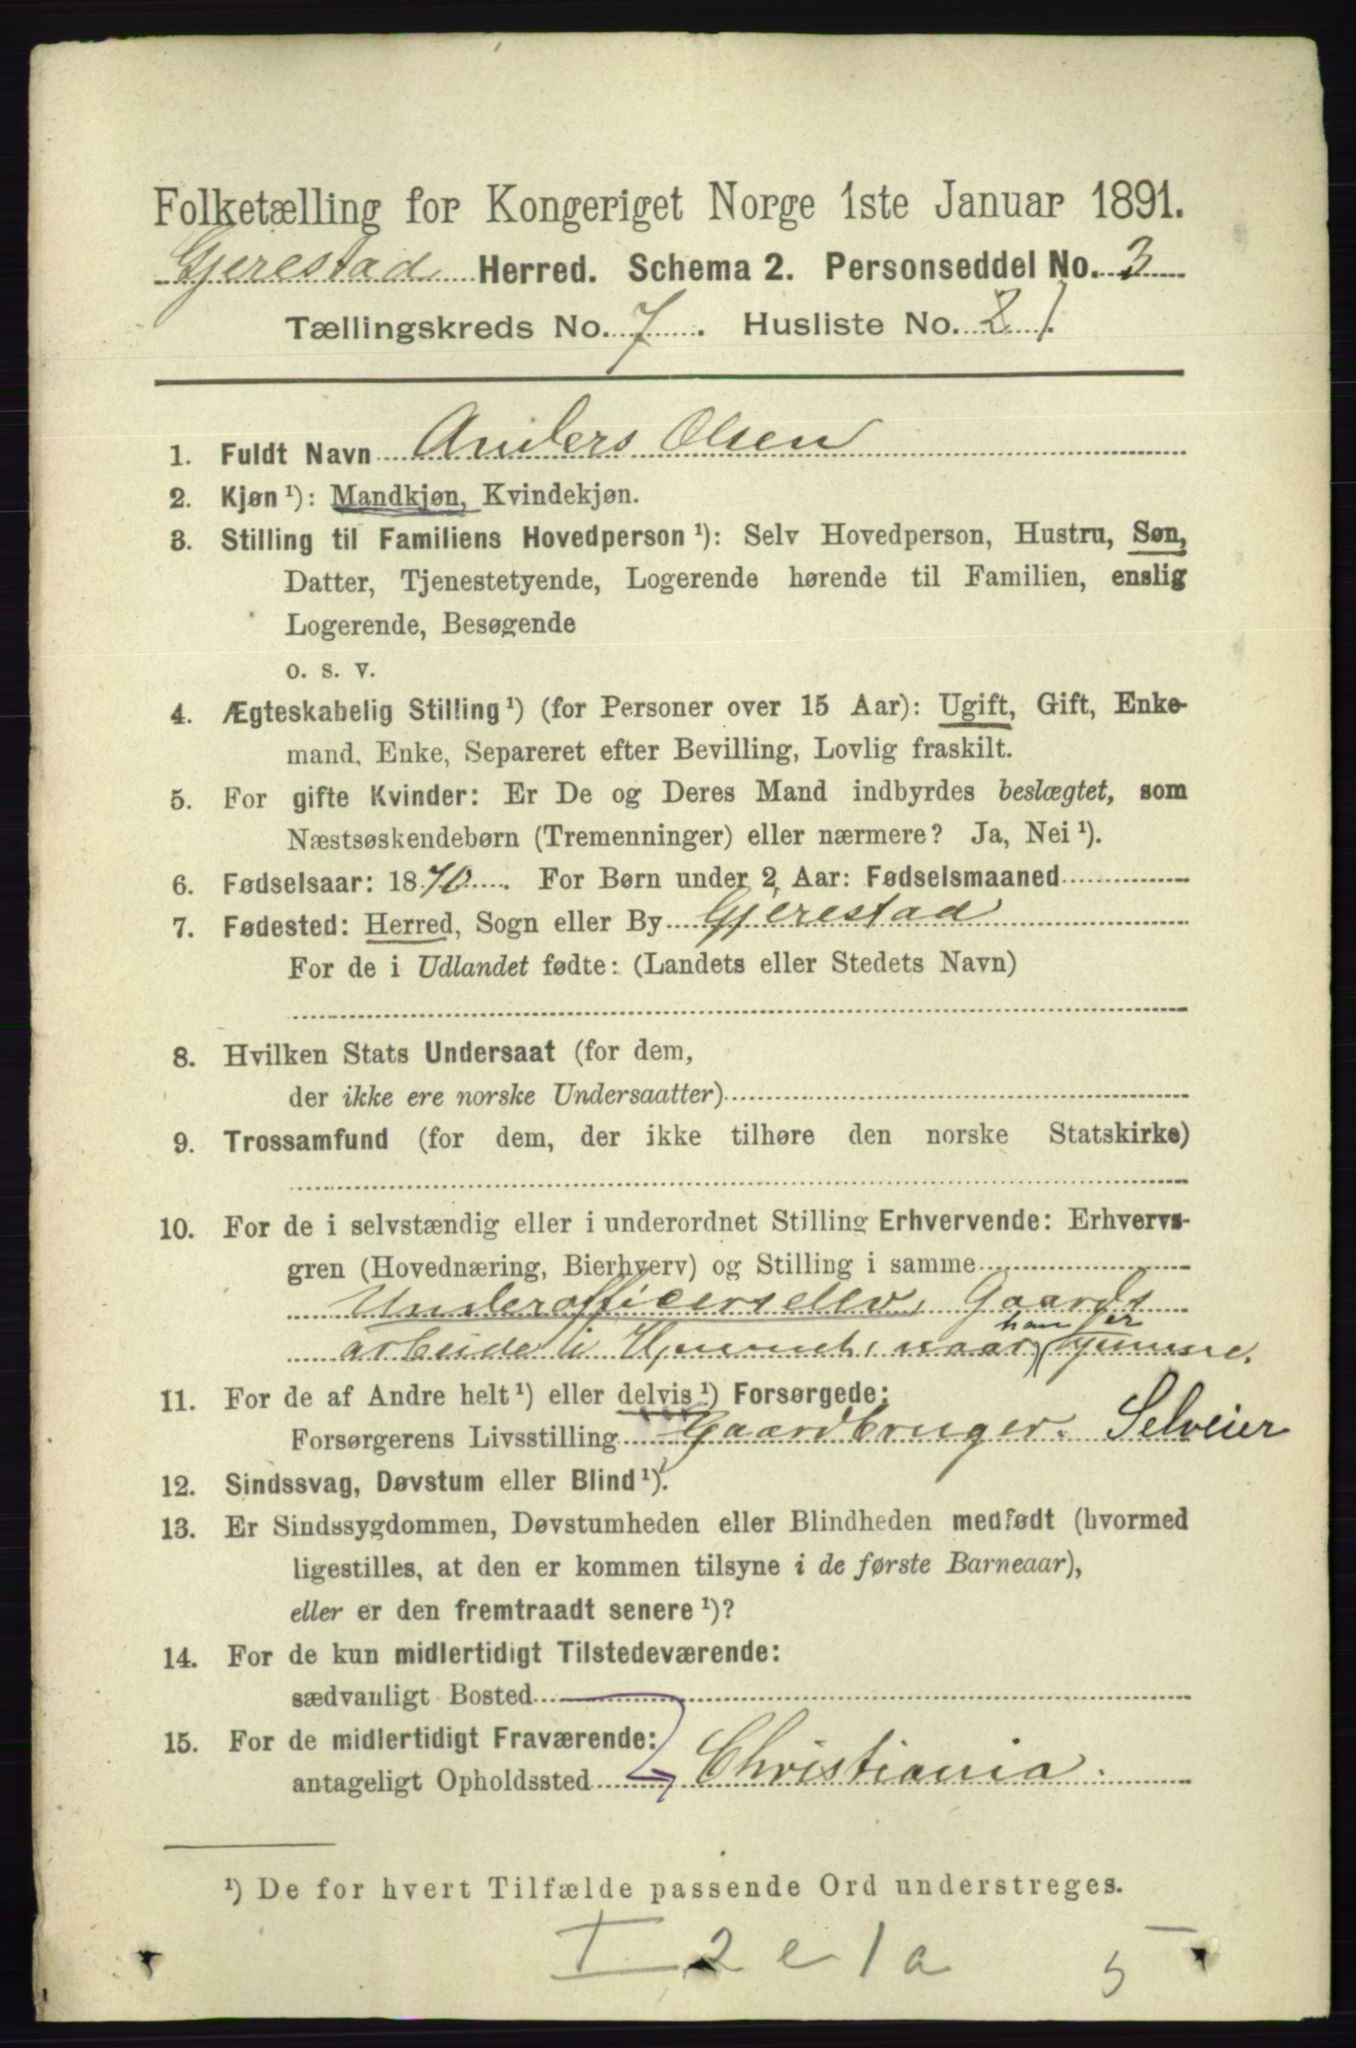 Folketælling for Kongeriget Norge 1ste Januar 1891.
Gjerestad Herred. Schema 2. Personseddel No. 3
Tællingskreds No. 7. Husliste No. 21.
1. Fuldt Navn Anders Olsen
2. Kjøn ¹): Mandkjøn, Kvindekjøn.
3. Stilling til Familiens Hovedperson ¹): Selv Hovedperson, Hustru, Søn,
Datter, Tjenestetyende, Logerende hørende til Familien, enslig
Logerende, Besøgende
o. s. v.
4. Ægteskabelig Stilling ¹) (for Personer over 15 Aar): Ugift, Gift, Enke-
mand, Enke, Separeret efter Bevilling, Lovlig fraskilt.
5. For gifte Kvinder: Er De og Deres Mand indbyrdes beslægtet, som
Næstsøskendebørn (Tremenninger) eller nærmere? Ja, Nei ¹).
6. Fødselsaar: 1870. For Børn under 2 Aar: Fødselsmaaned
7. Fødested: Herred, Sogn eller By Gjerestad
For de i Udlandet fødte: (Landets eller Stedets Navn)
8. Hvilken Stats Undersaat (for dem,
der ikke ere norske Undersaatter)
9. Trossamfund (for dem, der ikke tilhøre den norske Statskirke)
10. For de i selvstændig eller i underordnet Stilling Erhvervende: Erhvervs-
gren (Hovednæring, Bierhverv) og Stilling i samme
Underofficerselev, Gaards
han er
arbeide i Hjemmet, naar hjemme.
11. For de af Andre helt ¹) eller delvis ¹) Forsørgede:
Forsørgerens Livsstilling Gaardbruger. Selveier
12. Sindssvag, Døvstum eller Blind ¹).
13. Er Sindssygdommen, Døvstumheden eller Blindheden medfødt (hvormed
ligestilles, at den er kommen tilsyne i de første Barneaar),
eller er den fremtraadt senere ¹)?
14. For de kun midlertidigt Tilstedeværende:
sædvanligt Bosted
15. For de midlertidigt Fraværende:
antageligt Opholdssted Christiania.
¹) De for hvert Tilfælde passende Ord understreges.
I 2 e 1 a 5